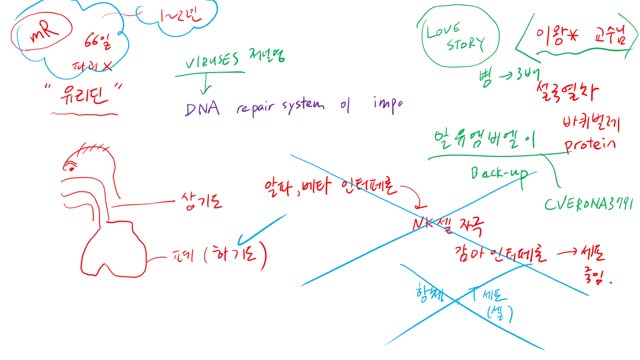 mR
66일
1~2번
"유리딘"
VIRUSES
DNA repair system of impo
LOVE
STORY
이왕* 교수님
병 → 3배
설국열차
바퀴벌레
protein
알유엠비엘이
Back-up
CVERONA3791
상기도
폐 (하기도)
알파, 베타 인터페론
NK셀 자극
감마 인터페론 → 세포
죽임.
항체
↑ 세포
(셀)